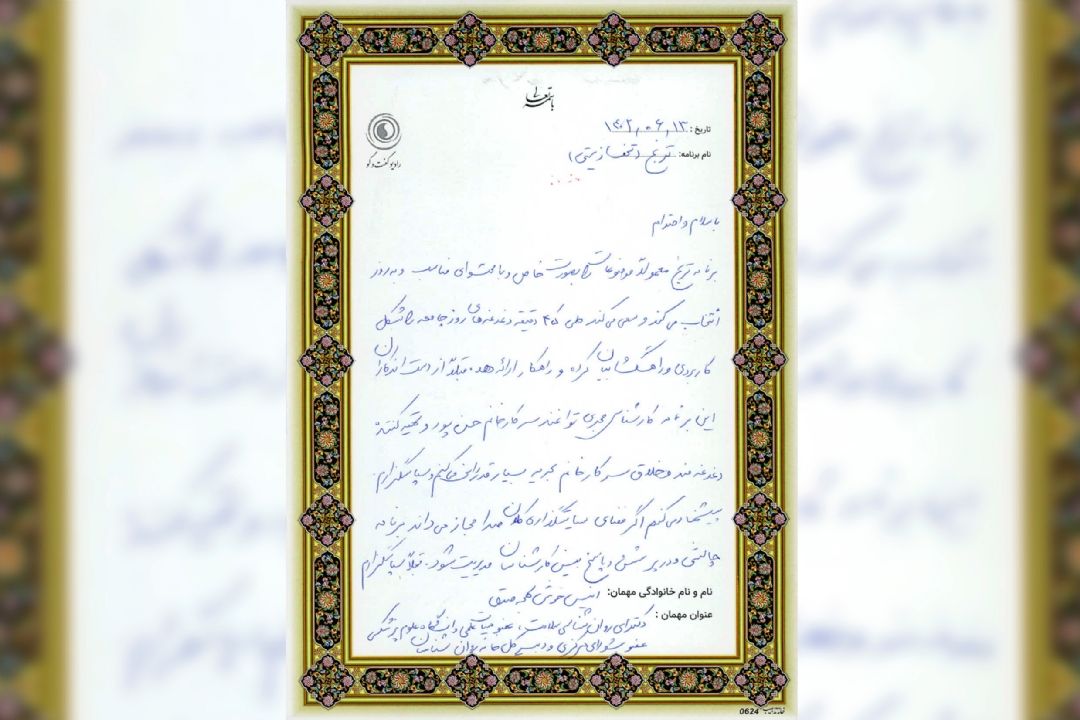 باسمه تعالی
رادیو گفت‌وگو
تاریخ: ۱۴۰۲,۰۶,۱۳
نام برنامه: ترنج
با سلام و احترام
برنامه ترنج معمولا موضوعات را بصورت خاص و با محتوای مناسب و به روز
انتخاب می‌کند و سعی می‌کند طی ۴۵ دقیقه دغدغه‌های روز جامعه را شکل
کاربردی و راهگشا بیان کرده و راهکار ارائه دهد. قبلا از دست اندرکاران
این برنامه کارشناس مجری توانمند سرکار خانم حسن پور و تهیه کننده
دغدغه مند و خلاق سرکار خانم بسیار قدردانی می‌کنم و سپاسگزارم.
پیشنهاد می‌کنم اگر فضای سیاستگذاری کلان صدا مجاز می‌داند برنامه
چالشی و در پرسش و پاسخ بین کارشناسان مدیریت شود. قبلا سپاسگزارم
نام و نام خانوادگی مهمان: انیس خوش لهجه صدق
عنوان مهمان: دکترای روان شناسی سلامت، عضو هیات علمی دانشگاه علوم پزشکی
عضو شورای مرکزی و خانه روان شناسان
0624